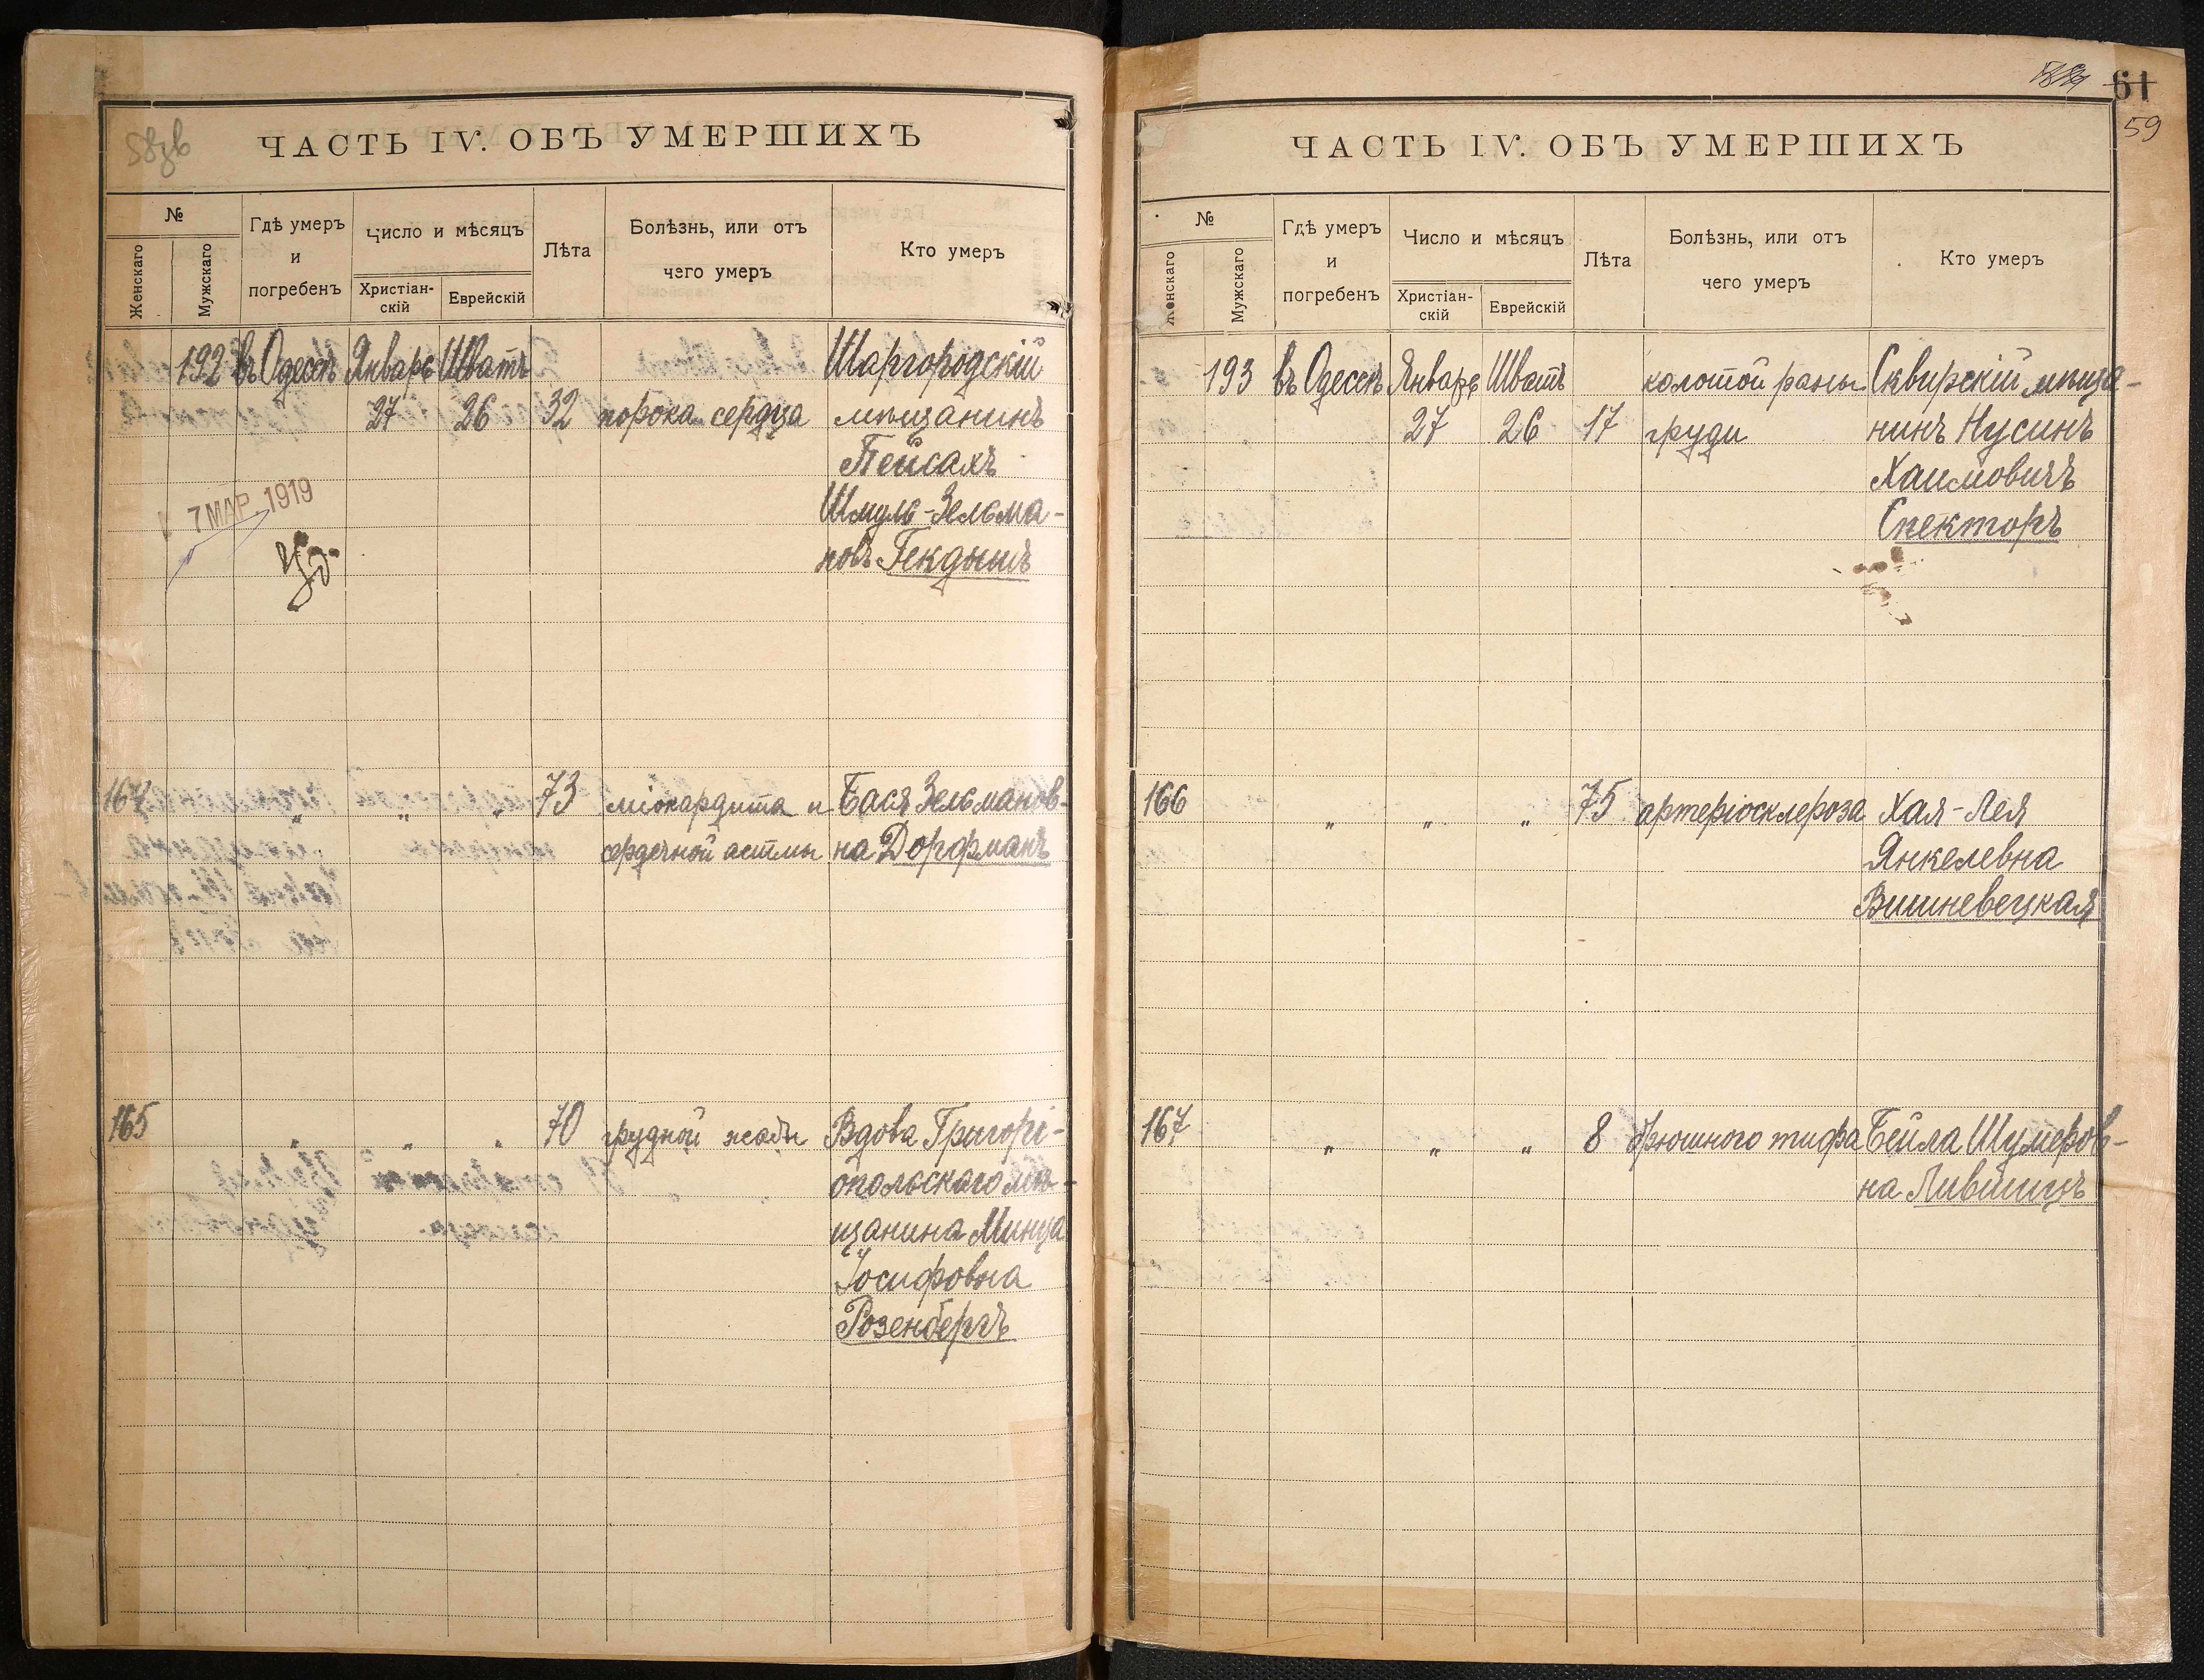 ЧАСТЬ IV. ОБЪ УМЕРШИХЪ
№
Женскаго
Мужскаго
Гдѣ умеръ
и
погребенъ
Число и мѣсяцъ
Христіан-
скій
Еврейскій
Лѣта
Болѣзнь, или отъ
чего умеръ
Кто умеръ
192 въ Одессѣ Январь Шватъ Шаргородскій
27 26 32 порока сердца мѣщанинъ
Пейсахъ
7 МАР. 1919 Шмуль-Зельма-
новъ
164 „ „ „ 73 міокардита и Бася Зельманов-
сердечной астмы на Дорфманъ
165 „ „ „ 70 грудной жабы Вдова Григорі-
опольскаго мѣ-
щанина Минца
Іосифовна
Розенбергъ
61
59
ЧАСТЬ IV. ОБЪ УМЕРШИХЪ
№
Женскаго
Мужскаго
Гдѣ умеръ
и
погребенъ
Число и мѣсяцъ
Христіан-
скій
Еврейскій
Лѣта
Болѣзнь, или отъ
чего умеръ
Кто умеръ
193 въ Одессѣ Январь Шватъ колотой раны Сквирскій мѣща-
27 26 17 груди нинъ Нусинъ
Хаимовичъ
Спекторъ
166 „ „ „ 75 артеріосклероза Хая-Лея
Янкелевна
Вишневецкая
167 „ „ „ 8 брюшного тифа Бейла Шумеров-
на Лившицъ